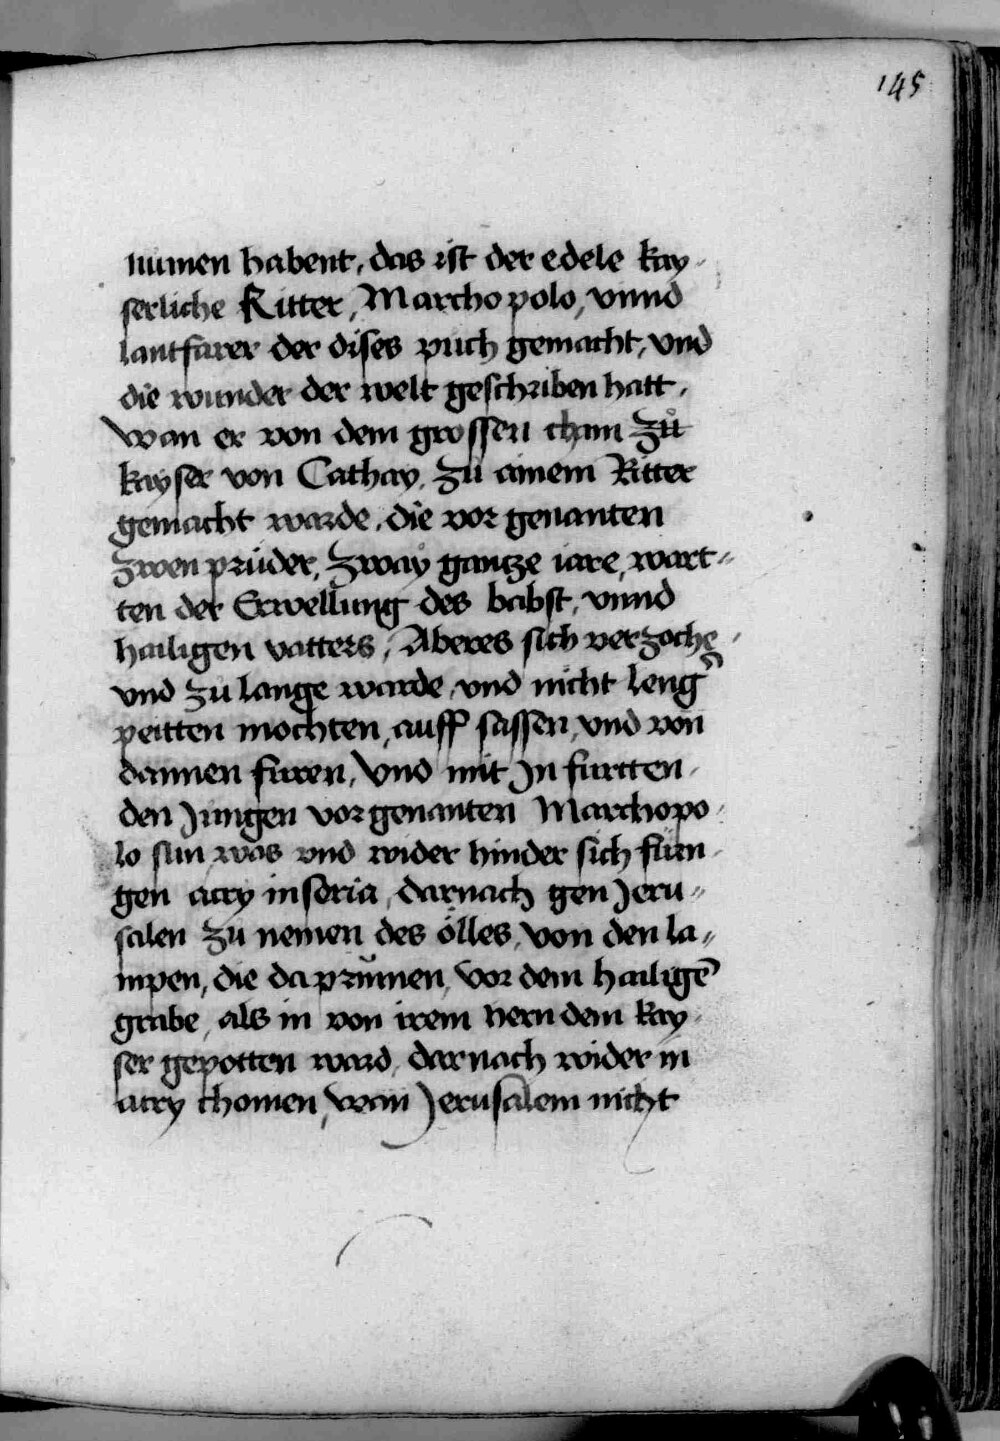 145
numen habent, das ist der edele kay-
serliche Ritter, Marcho polo, vnnd
lantfarer der dises puch gemacht, vnd
die wunder der welt geschriben hatt,
wan er von dem grossen cham zů
kayser von Cathay, zu ainem Ritter
gemacht warde, die vor genanten
zwen prüder, zway gantze iare, wart-
ten der Erwellung des babst, vnnd
hailigen vatters, Aber es sich verzoche,
vnd zu lange warde, vnd nicht leng᷑
peitten mochten, auff sassen, vnd von
dannen furen, Vnd mit Jn furtten,
den Jungen vor genanten Marchopo
lo sun was vnd wider hinder sich fürn
gen acry in soria, darnach gen Jeru-
salen zu nemen des ölles, von den la-
mpen, die da prünnen, vor dem hailigē
grabe, als in von irem hern dem kay
ser gepotten ward, dar nach wider in
acry chomen, wan Jerusalem nicht